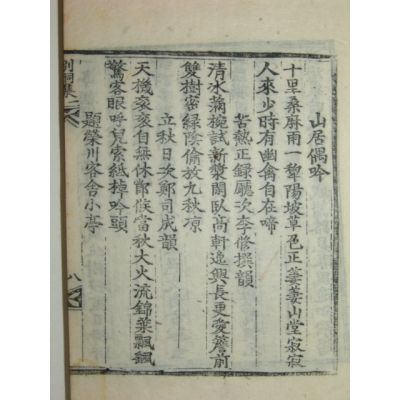 山居偶吟
十里桑麻雨一犂陽坡草色正萋萋山堂寂寂
人來少時有幽禽自在啼
苦熱正錄廳次李修撰韻
清水滿椀試新漿閑臥高軒逸興長更愛簷前
雙樹密綠陰偷放九秋凉
立秋日次鄭司成韻
天機袞袞自無休節候當秋大火流錦葉飄飄
驚客眼呼兒索紙掉吟頭
題榮川客舍小亭
別洞集
八